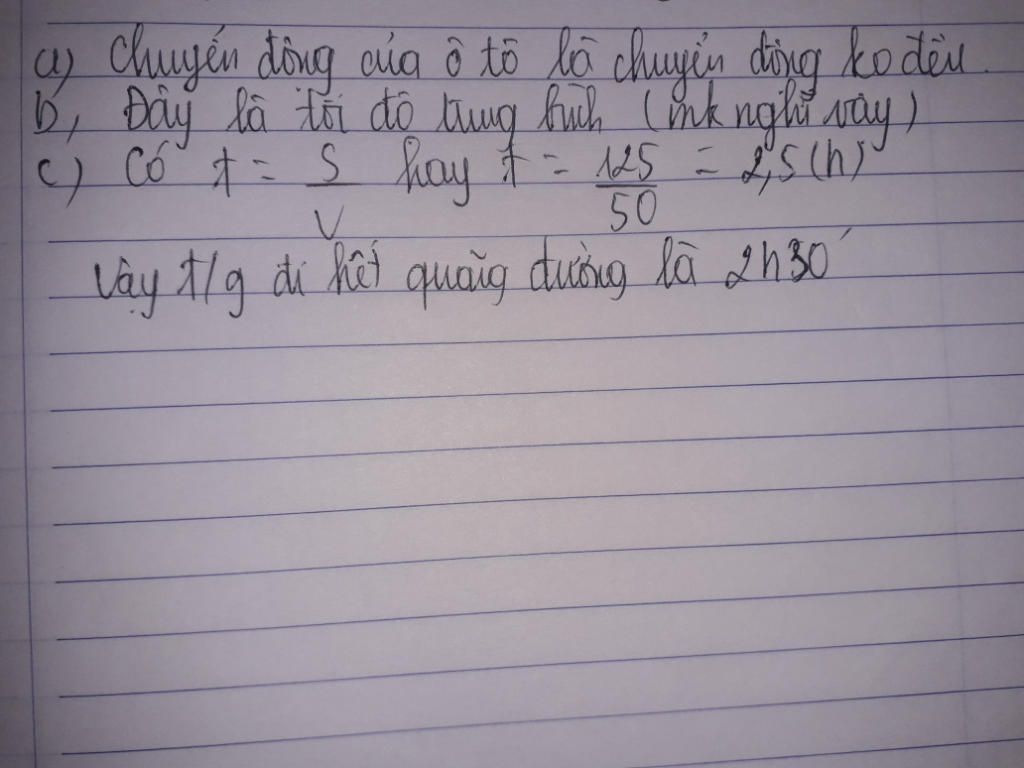 a) Chuyển động của ô tô là chuyển động ko đều.
b, Đây là tối độ trung bình (mk nghĩ vậy)
c) Có t = S/V hay t = 125/50 = 2,5 (h)
Vậy t/g đi hết quãng đường là 2h30'